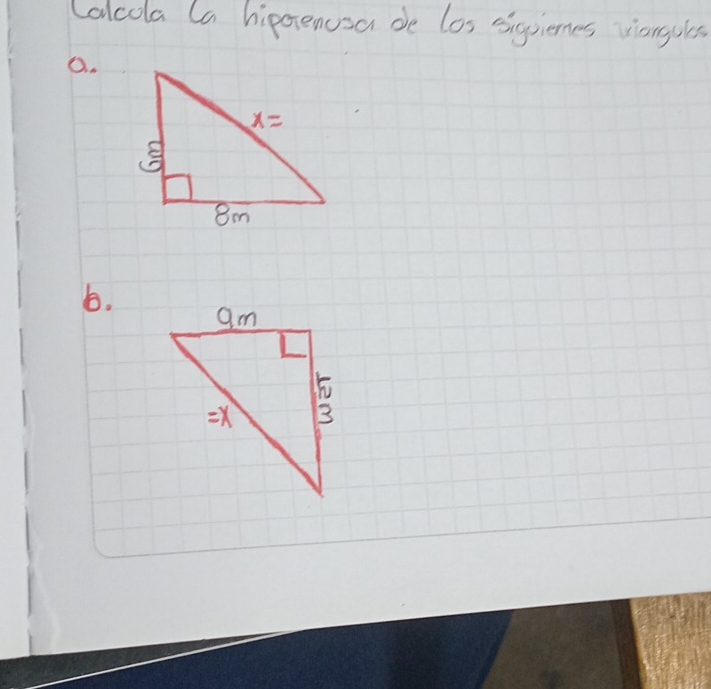 Calcula la hipotenusa de los siguientes triangulos
a.
x=
6m
8m
b.
9m
12m
=x